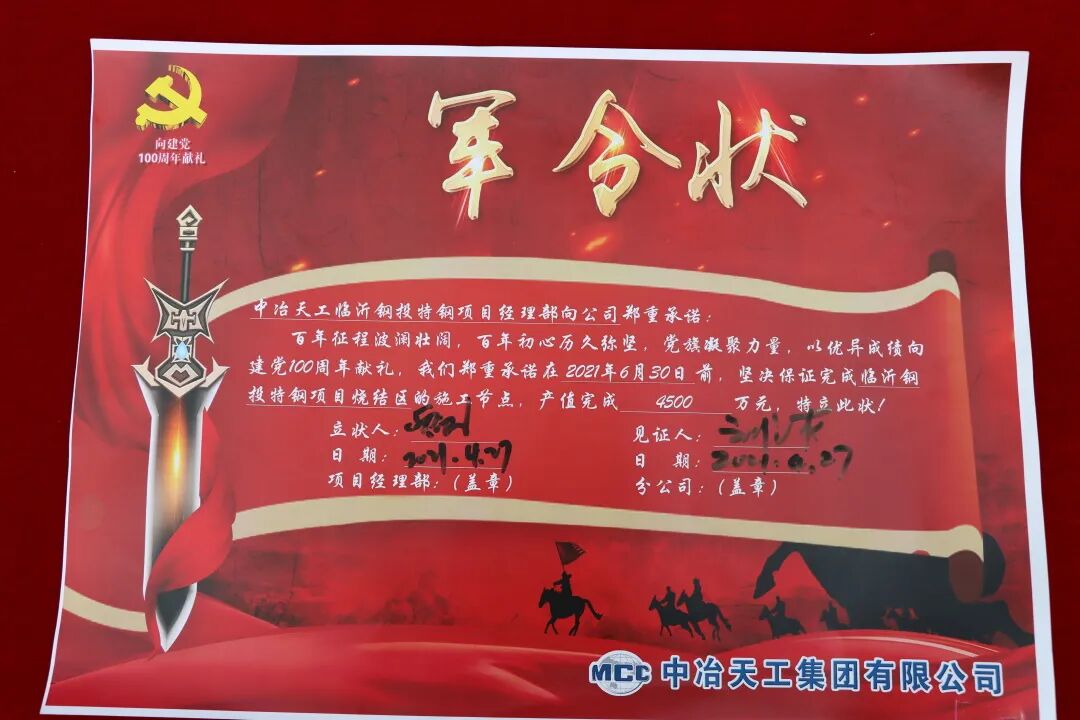 向建党
100周年献礼
军令状
中冶天工临沂钢投特钢项目经理部向公司郑重承诺：
百年征程波澜壮阔，百年初心历久弥坚，党旗凝聚力量，以优异成绩向
建党100周年献礼，我们郑重承诺在2021年6月30日前，坚决保证完成临沂钢
投特钢项目烧结区的施工节点，产值完成 4500 万元，特立此状！
立状人： 见证人：
日 期：2021.4.27 日 期：2021.4.27
项目经理部：（盖章） 分公司：（盖章）
MCC 中冶天工集团有限公司